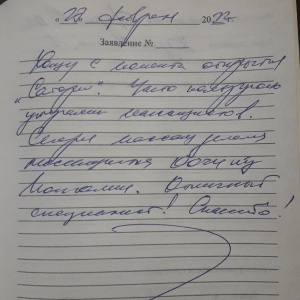 "22" февраля 2022г.
Заявление №
Хожу с момента открытия
"Сатори". Часто пользуюсь
услугами массажистов.
Сегодня массаж делал
массажист
Монголии. Отличный
специалист! Спасибо!